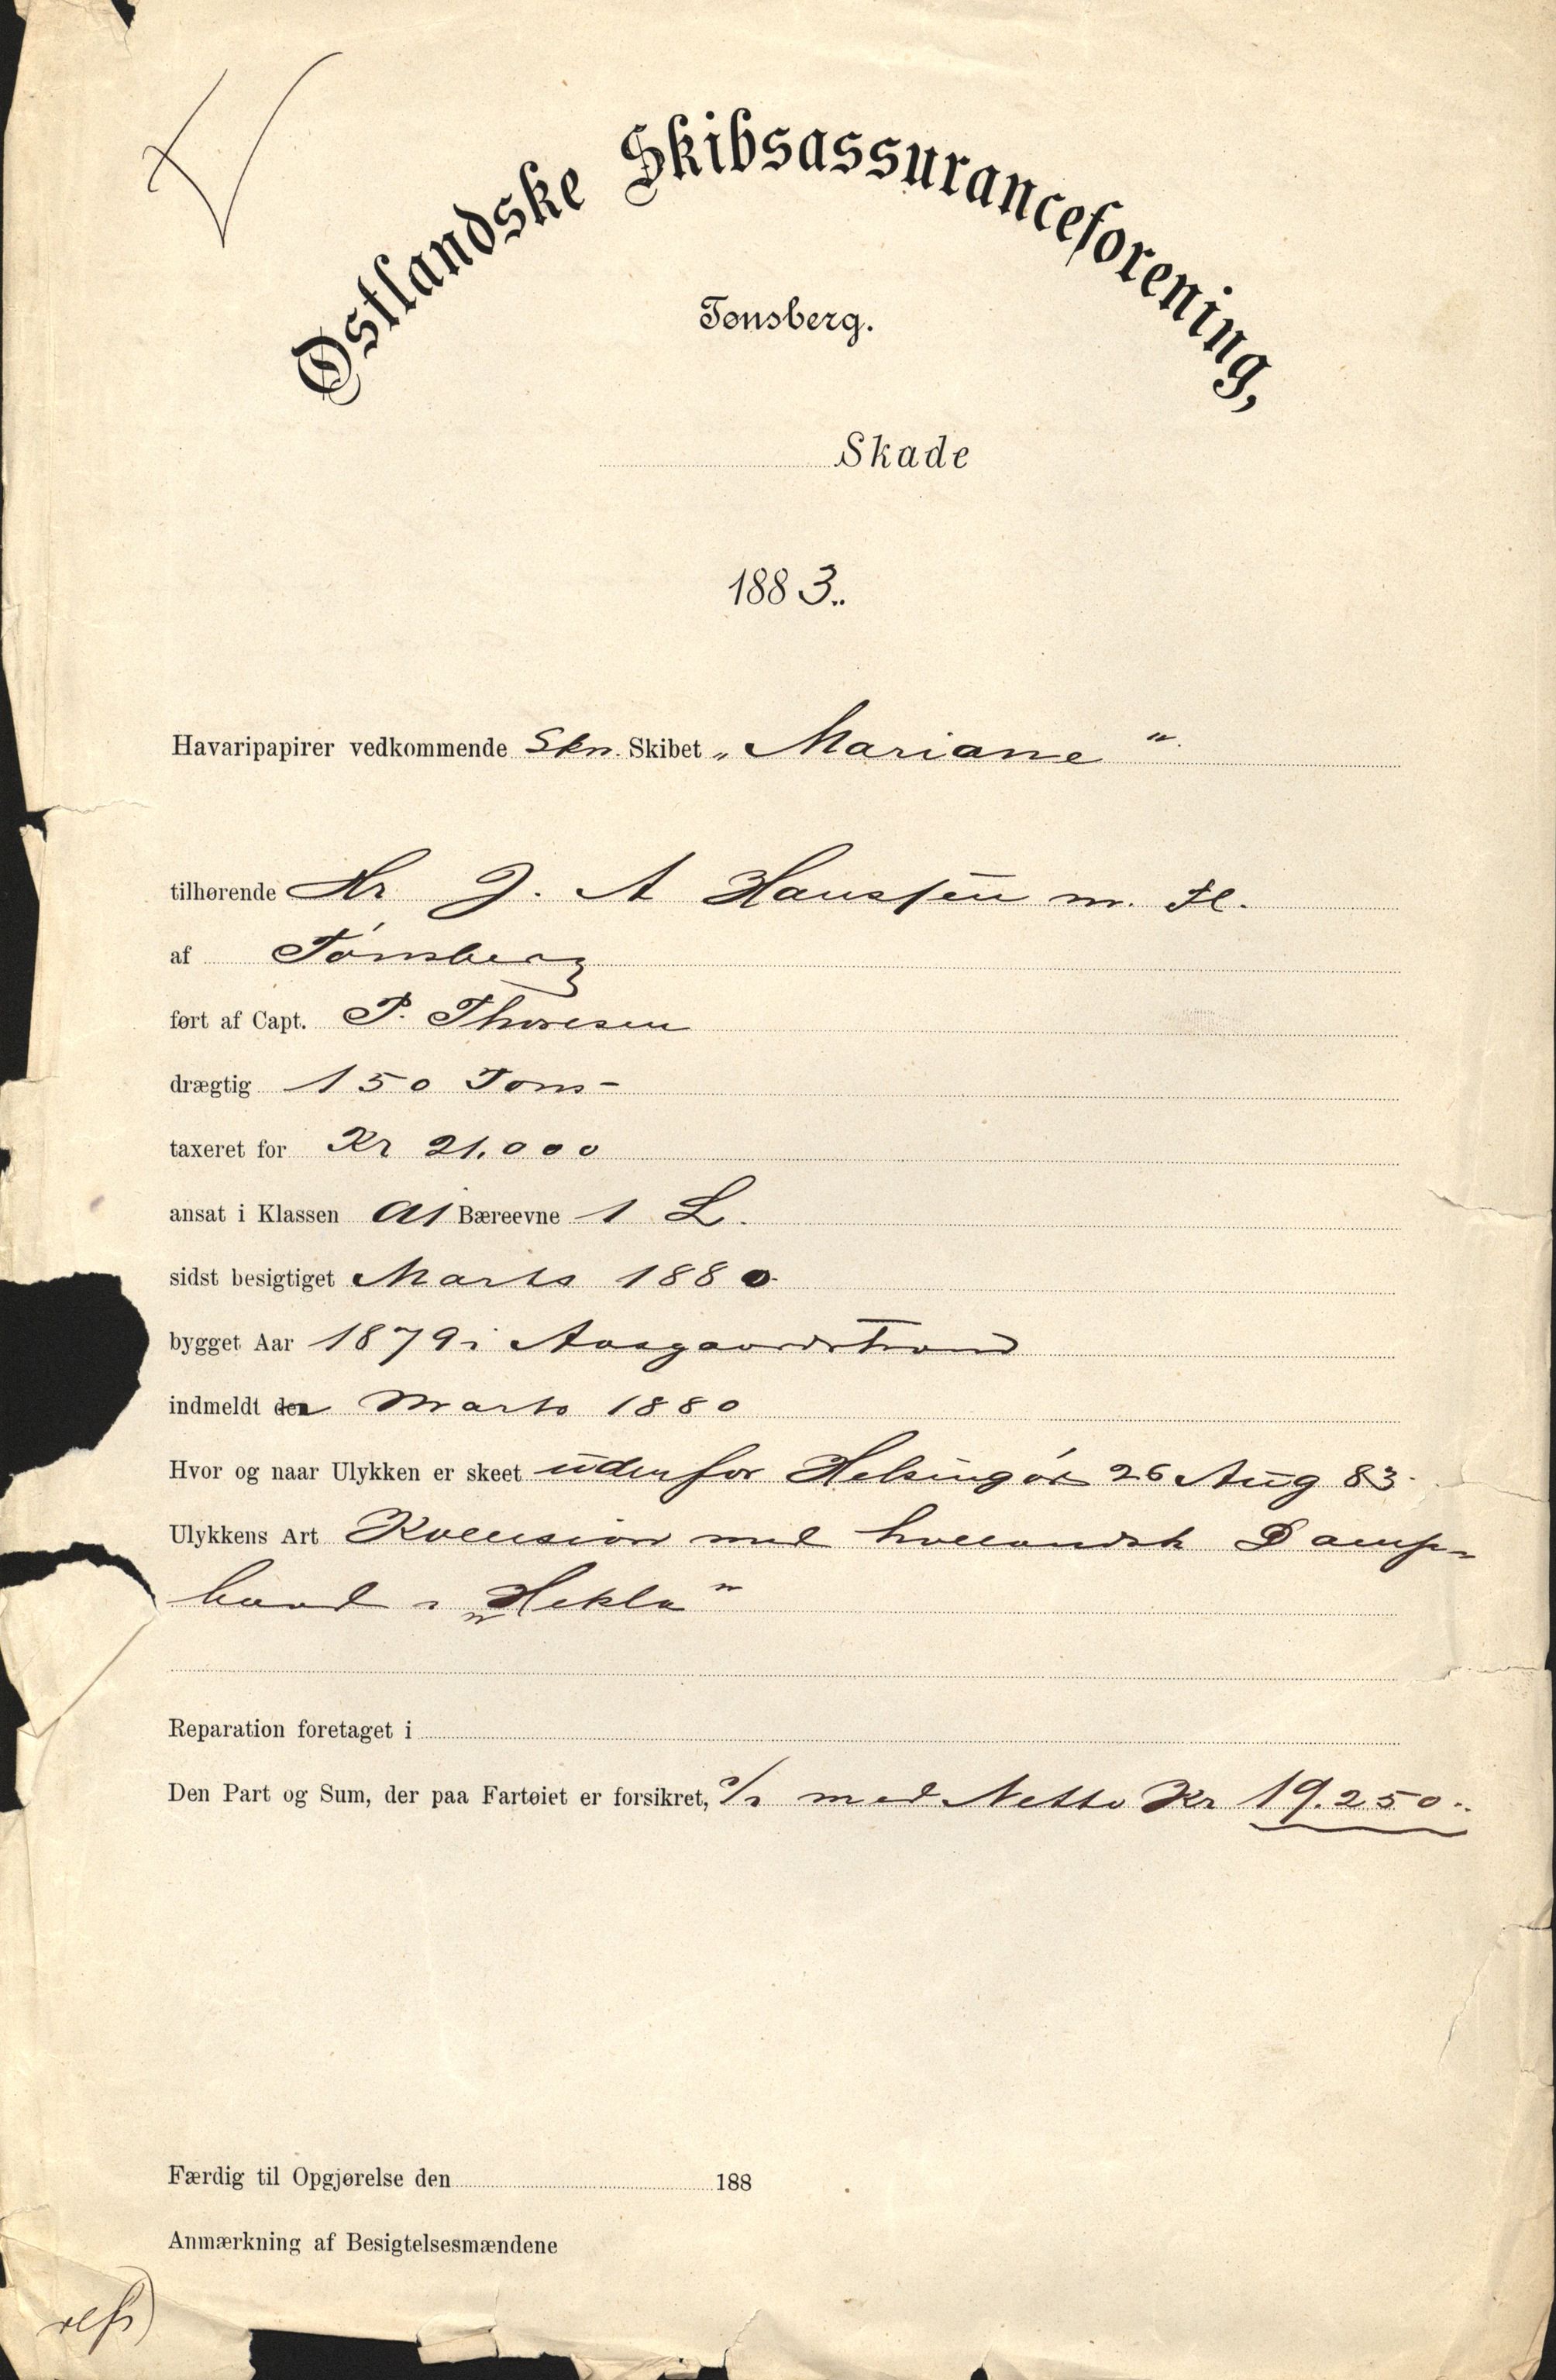 Østlandske Skibsassuranceforening,
Tønsberg.
Skade
1883.
Havaripapirer vedkommende Skn. Skibet „Mariane"
tilhørende Hr J. A Hanssen m. Fl.
af Tønsberg
ført af Capt. P. Thoresen
drægtig 150 Tons
taxeret for Kr 21.000
ansat i Klassen A1 Bæreevne 1 L.
sidst besigtiget Marts 1880
bygget Aar 1879 i Aasgaardstrand
indmeldt den Marts 1880
Hvor og naar Ulykken er skeet udenfor Helsingør 26 Aug 83
Ulykkens Art Kollision med hollandsk Damp-
baad „Hekla"
Reparation foretaget i
Den Part og Sum, der paa Fartøiet er forsikret, med Netto Kr 19.250
Færdig til Opgjørelse den 188
Anmærkning af Besigtelsesmændene